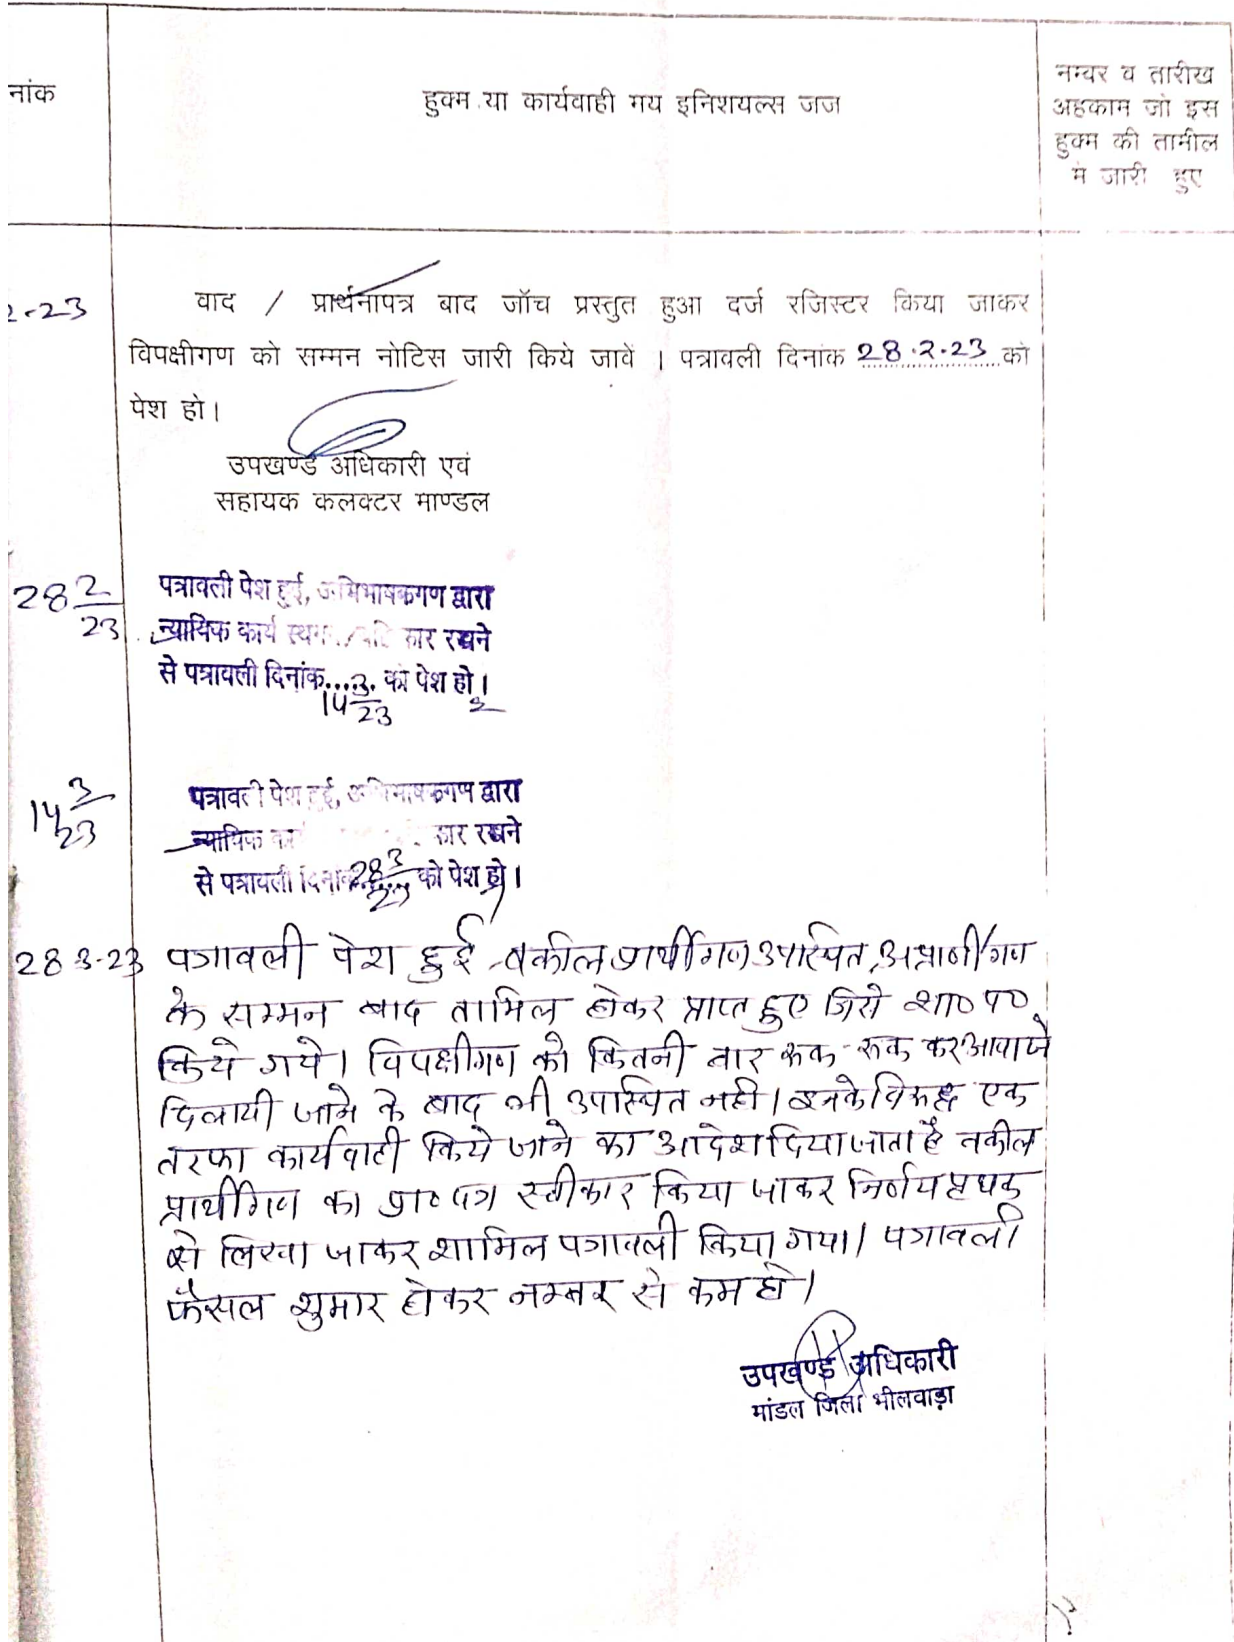 नांक
हुक्म या कार्यवाही मय इनिशयल्स जज
नम्बर व तारीख
अहकाम जो इस
हुक्म की तामील
में जारी हुए
2-23
वाद / प्रार्थनापत्र बाद जॉच प्रस्तुत हुआ दर्ज रजिस्टर किया जाकर
विपक्षीगण को सम्मन नोटिस जारी किये जावें । पत्रावली दिनांक 28.2.23 को
पेश हो।
उपखण्ड अधिकारी एवं
सहायक कलक्टर माण्डल
28 2/23
पत्रावली पेश हुई, अभिभाषकगण द्वारा
न्यायिक कार्य स्थगन / कार रखने
से पत्रावली दिनांक 14 3/23 को पेश हो।
14 3/23
पत्रावली पेश हुई, अभिभाषकगण द्वारा
न्यायिक कार रखने
से पत्रावली दिनांक 28 3/23 को पेश हो।
28 3-23 पत्रावली पेश हुई वकील प्रार्थीगण उपस्थित, अप्रार्थीगण
के सम्मन बाद तामिल होकर प्राप्त हुए जिसे शा० प०
किये गये। विपक्षीगण को कितनी बार रूक-रूक कर आवाजे
दिलायी जाने के बाद भी उपस्थित नही। इनके विरूद्ध एक
तरफा कार्यवाही किये जाने का आदेश दिया जाता है वकील
प्रार्थीगण का प्रा० पत्र स्वीकार किया जाकर निर्णय पृथक
से लिखा जाकर शामिल पत्रावली किया गया। पत्रावली
फैसल शुमार होकर नम्बर से कम हो।
उपखण्ड अधिकारी
मांडल जिला भीलवाड़ा